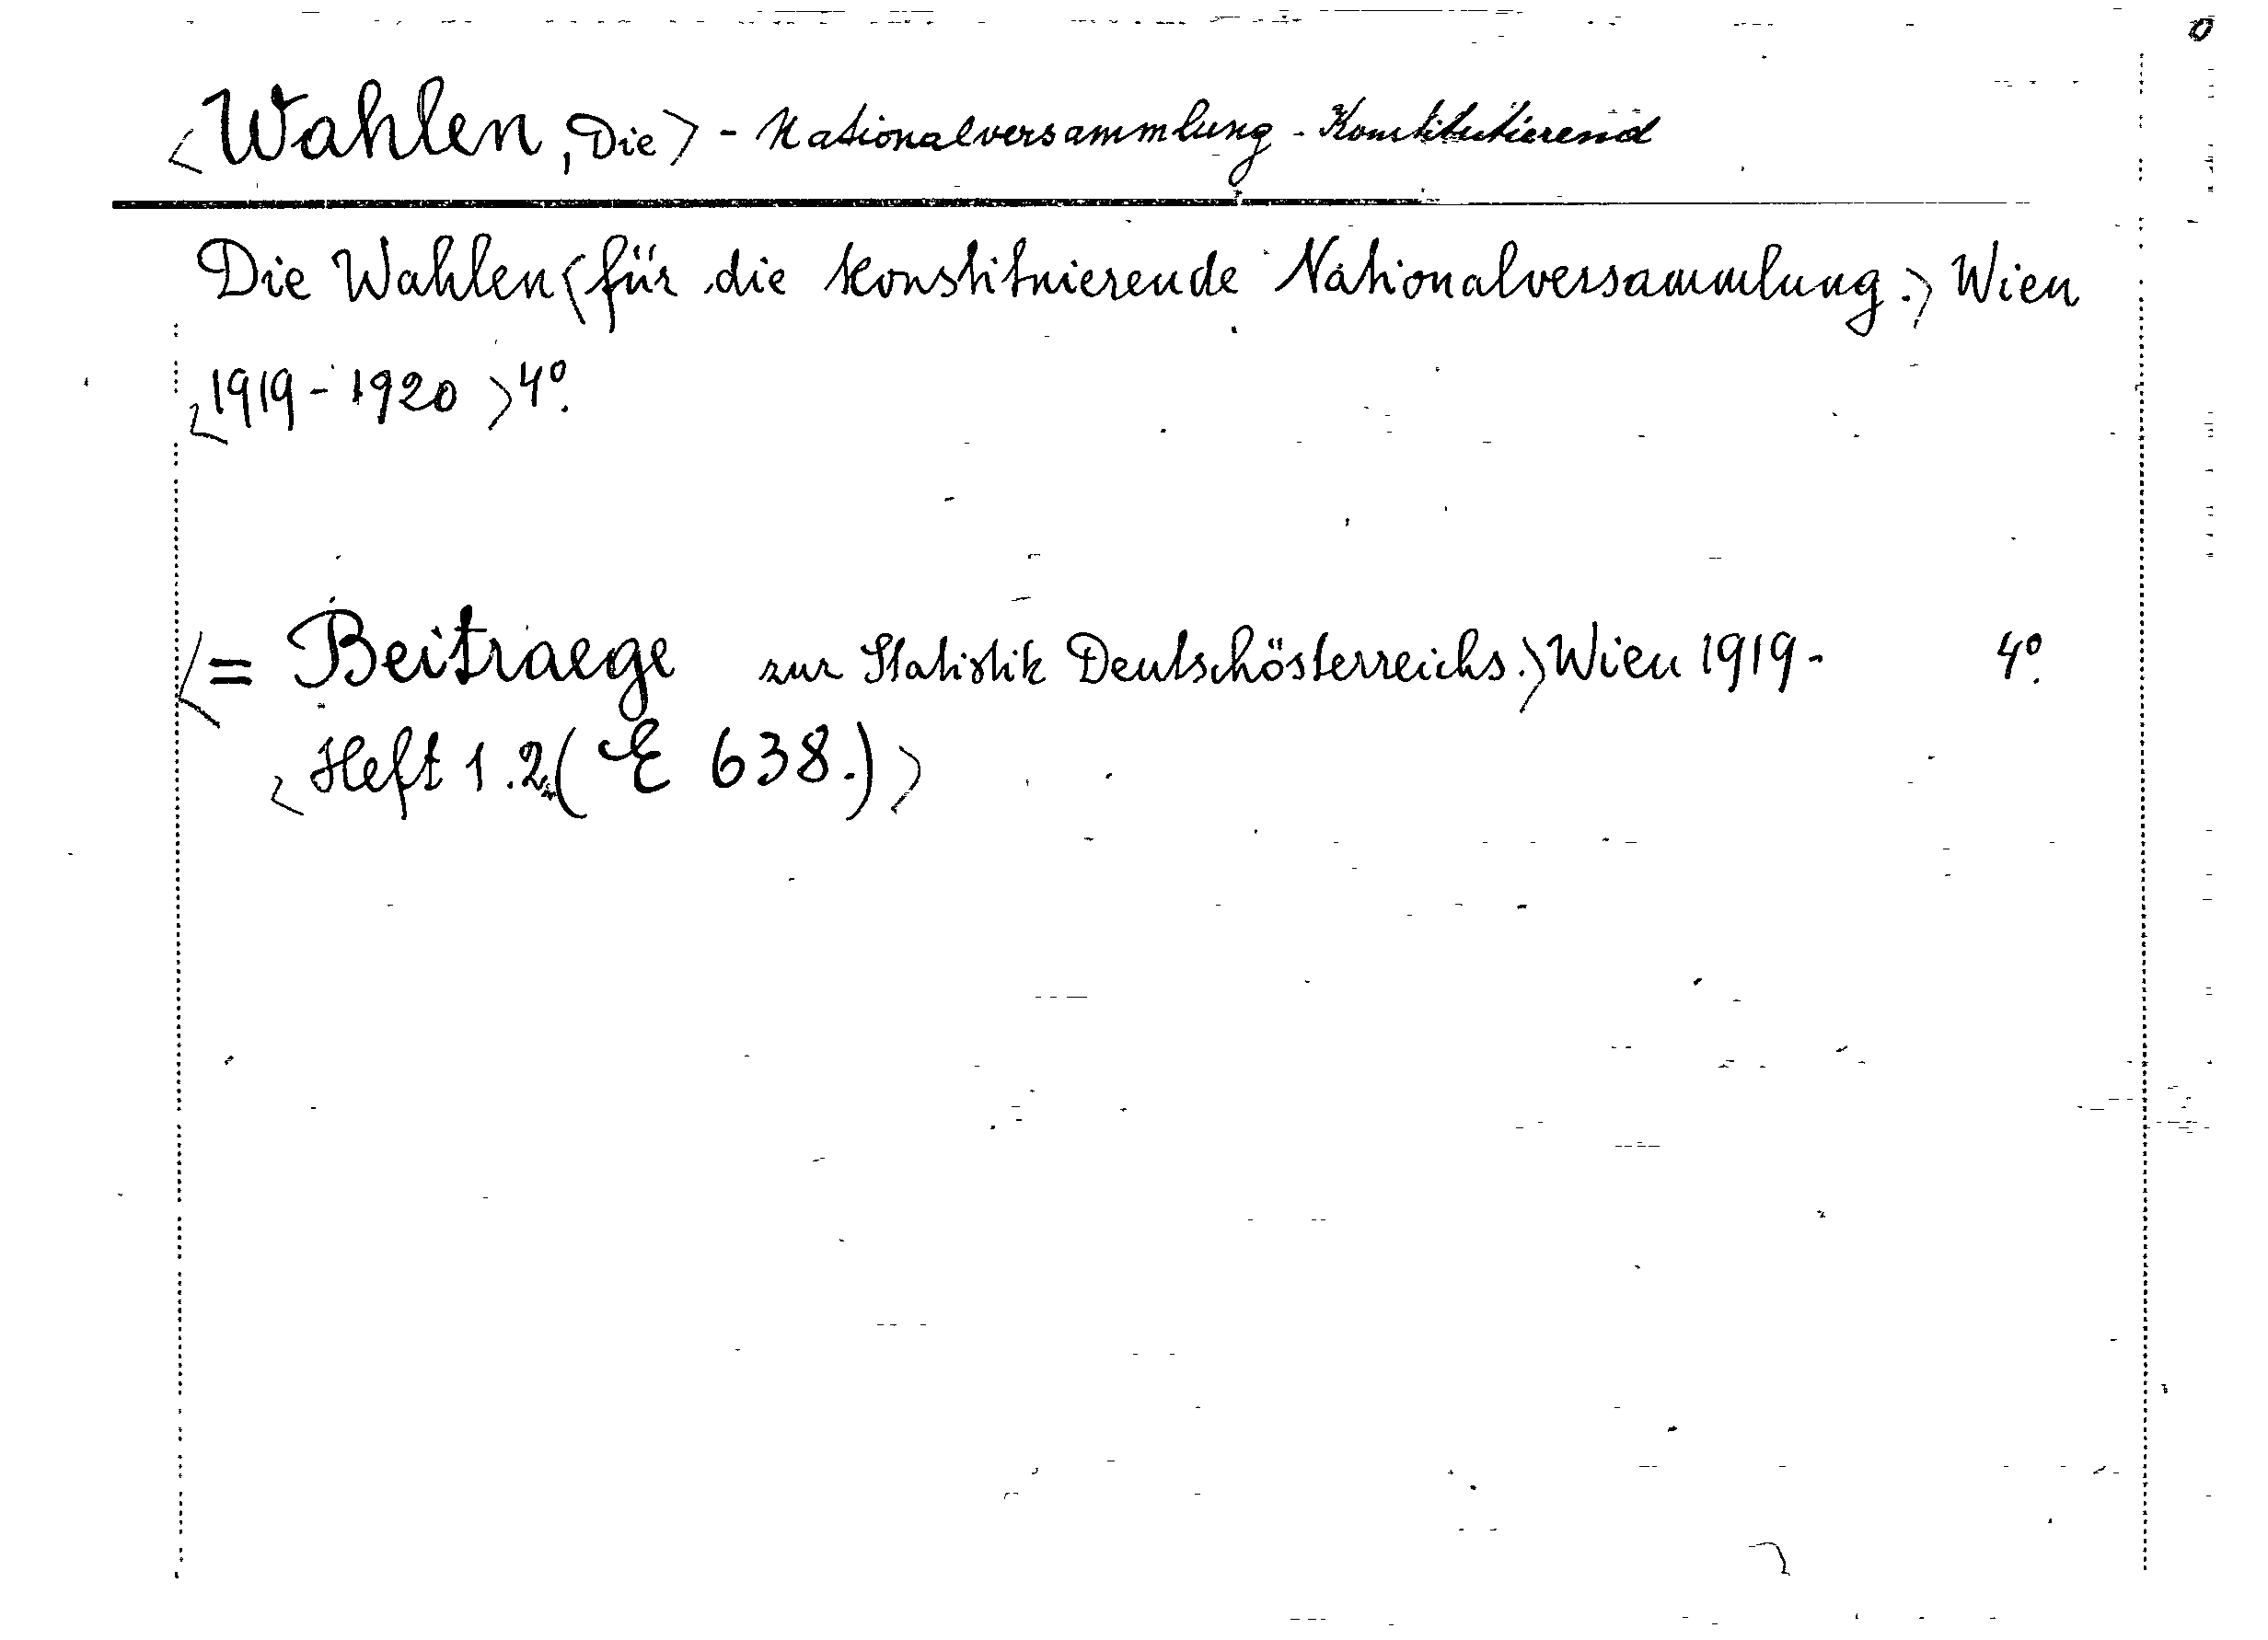 <Wahlen, Die> - Nationalversammlung - Konstituierend
Die Wahlen <für die konstituierende Nationalversammlung.> Wien
<1919-1920> 4°.
<= Beitraege zur Statistik Deutschösterreichs.> Wien 1919- 4°.
<Heft 1.2. (E 638.)>